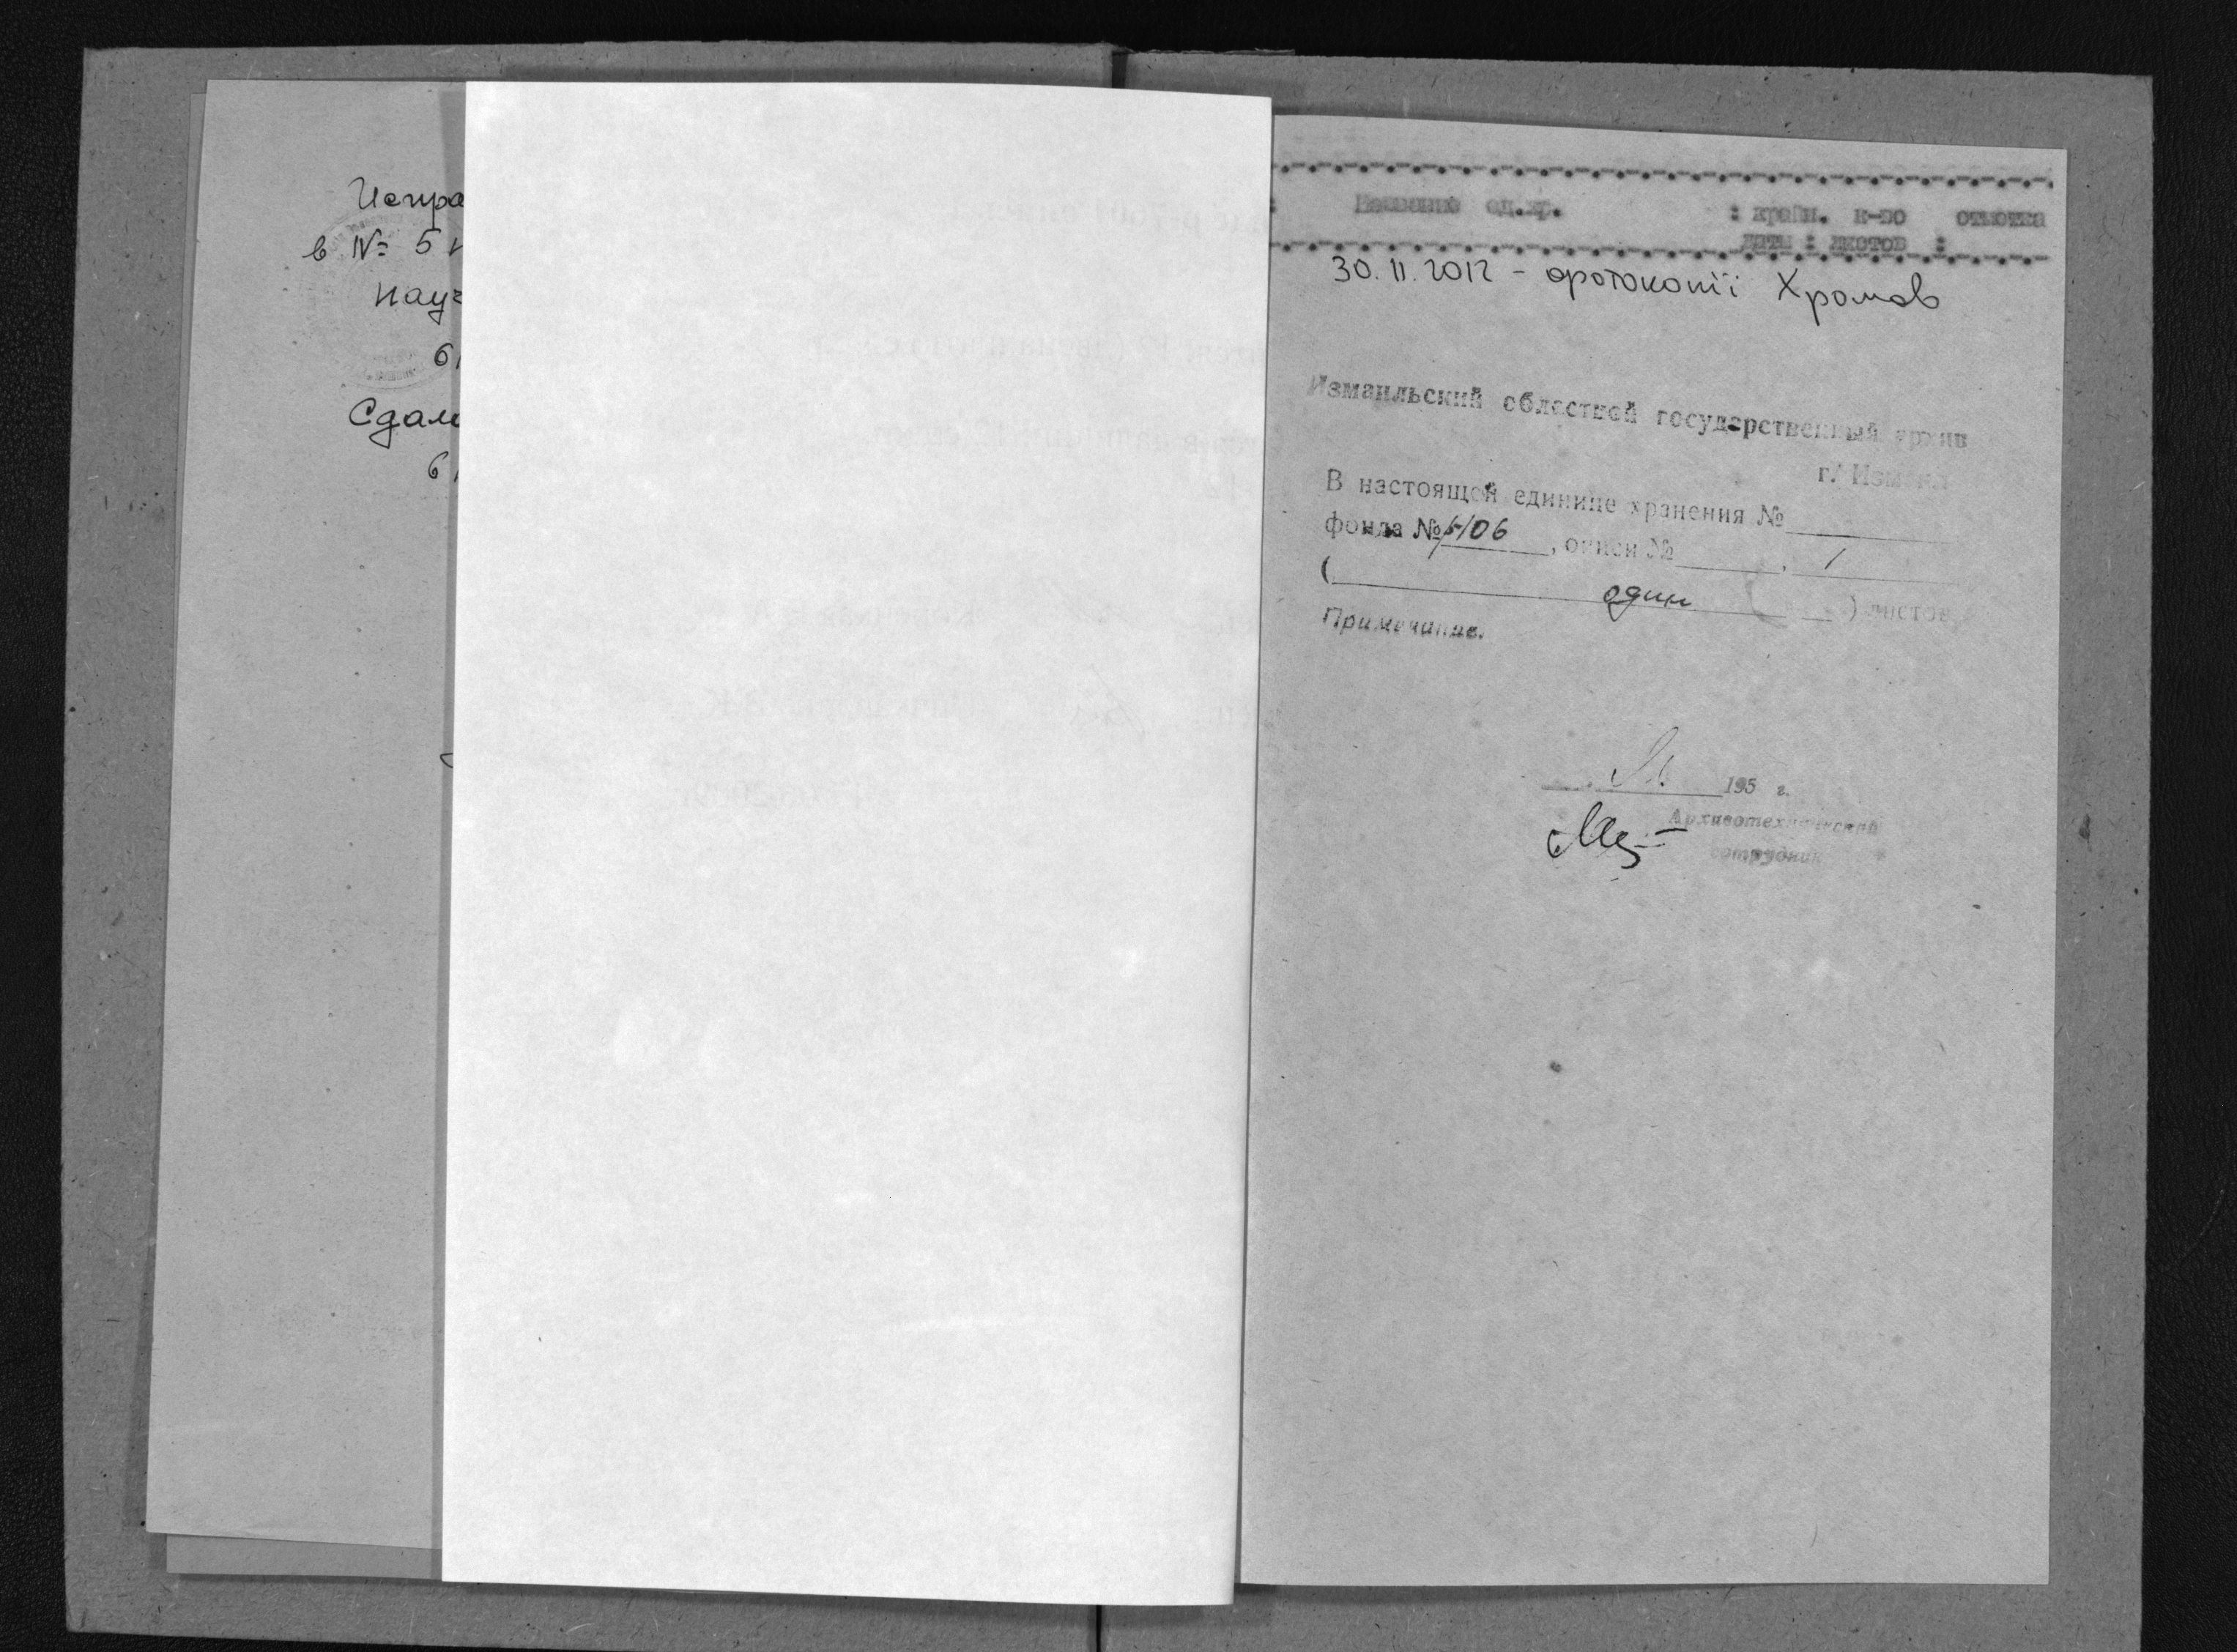 Испра
в № 5
науч
Сдал
: Название ед.хр. : крайн. к-во отметка
даты : листов :
30.11.2012 - фотокопії Хромов
Измаильский областной государственный архив
г. Измаил
В настоящей единице хранения №
фонда № 106, описи № , 1
( один ) листов
Примечание.
195 г.
Архивотехнический
сотрудник